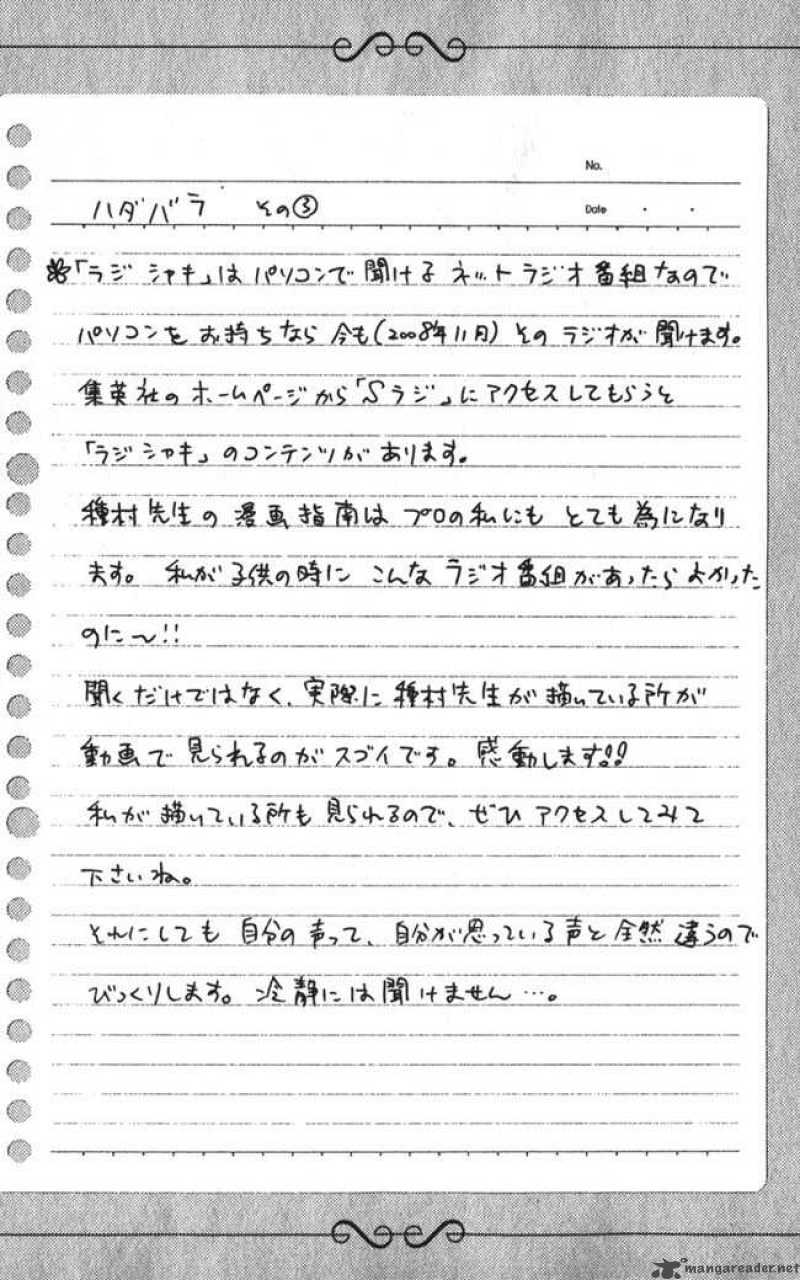 No.
ハダバラ その③
Date ・ ・
「ラジ シャキ」は パソコンで 聞ける ネットラジオ番組なので
パソコンを お持ちなら 今も(2008年11月) その ラジオが 聞けます。
集英社の ホームページから「Sラジ」に アクセスしてもらうと
「ラジ シャキ」の コンテンツが あります。
種村先生の 漫画指南は プロの私にも とても為になり
ます。 私が子供の時に こんな ラジオ番組があったら よかった
のに〜!!
聞くだけではなく、実際に種村先生が描いている所が
動画で 見られるのが スゴイです。 感動します!!
私が 描いている所も 見られるので、ぜひ アクセスしてみて
下さいね。
それにしても 自分の声って、自分が思っている声と 全然 違うので
びっくりします。 冷静には聞けません…。
mangareader.net